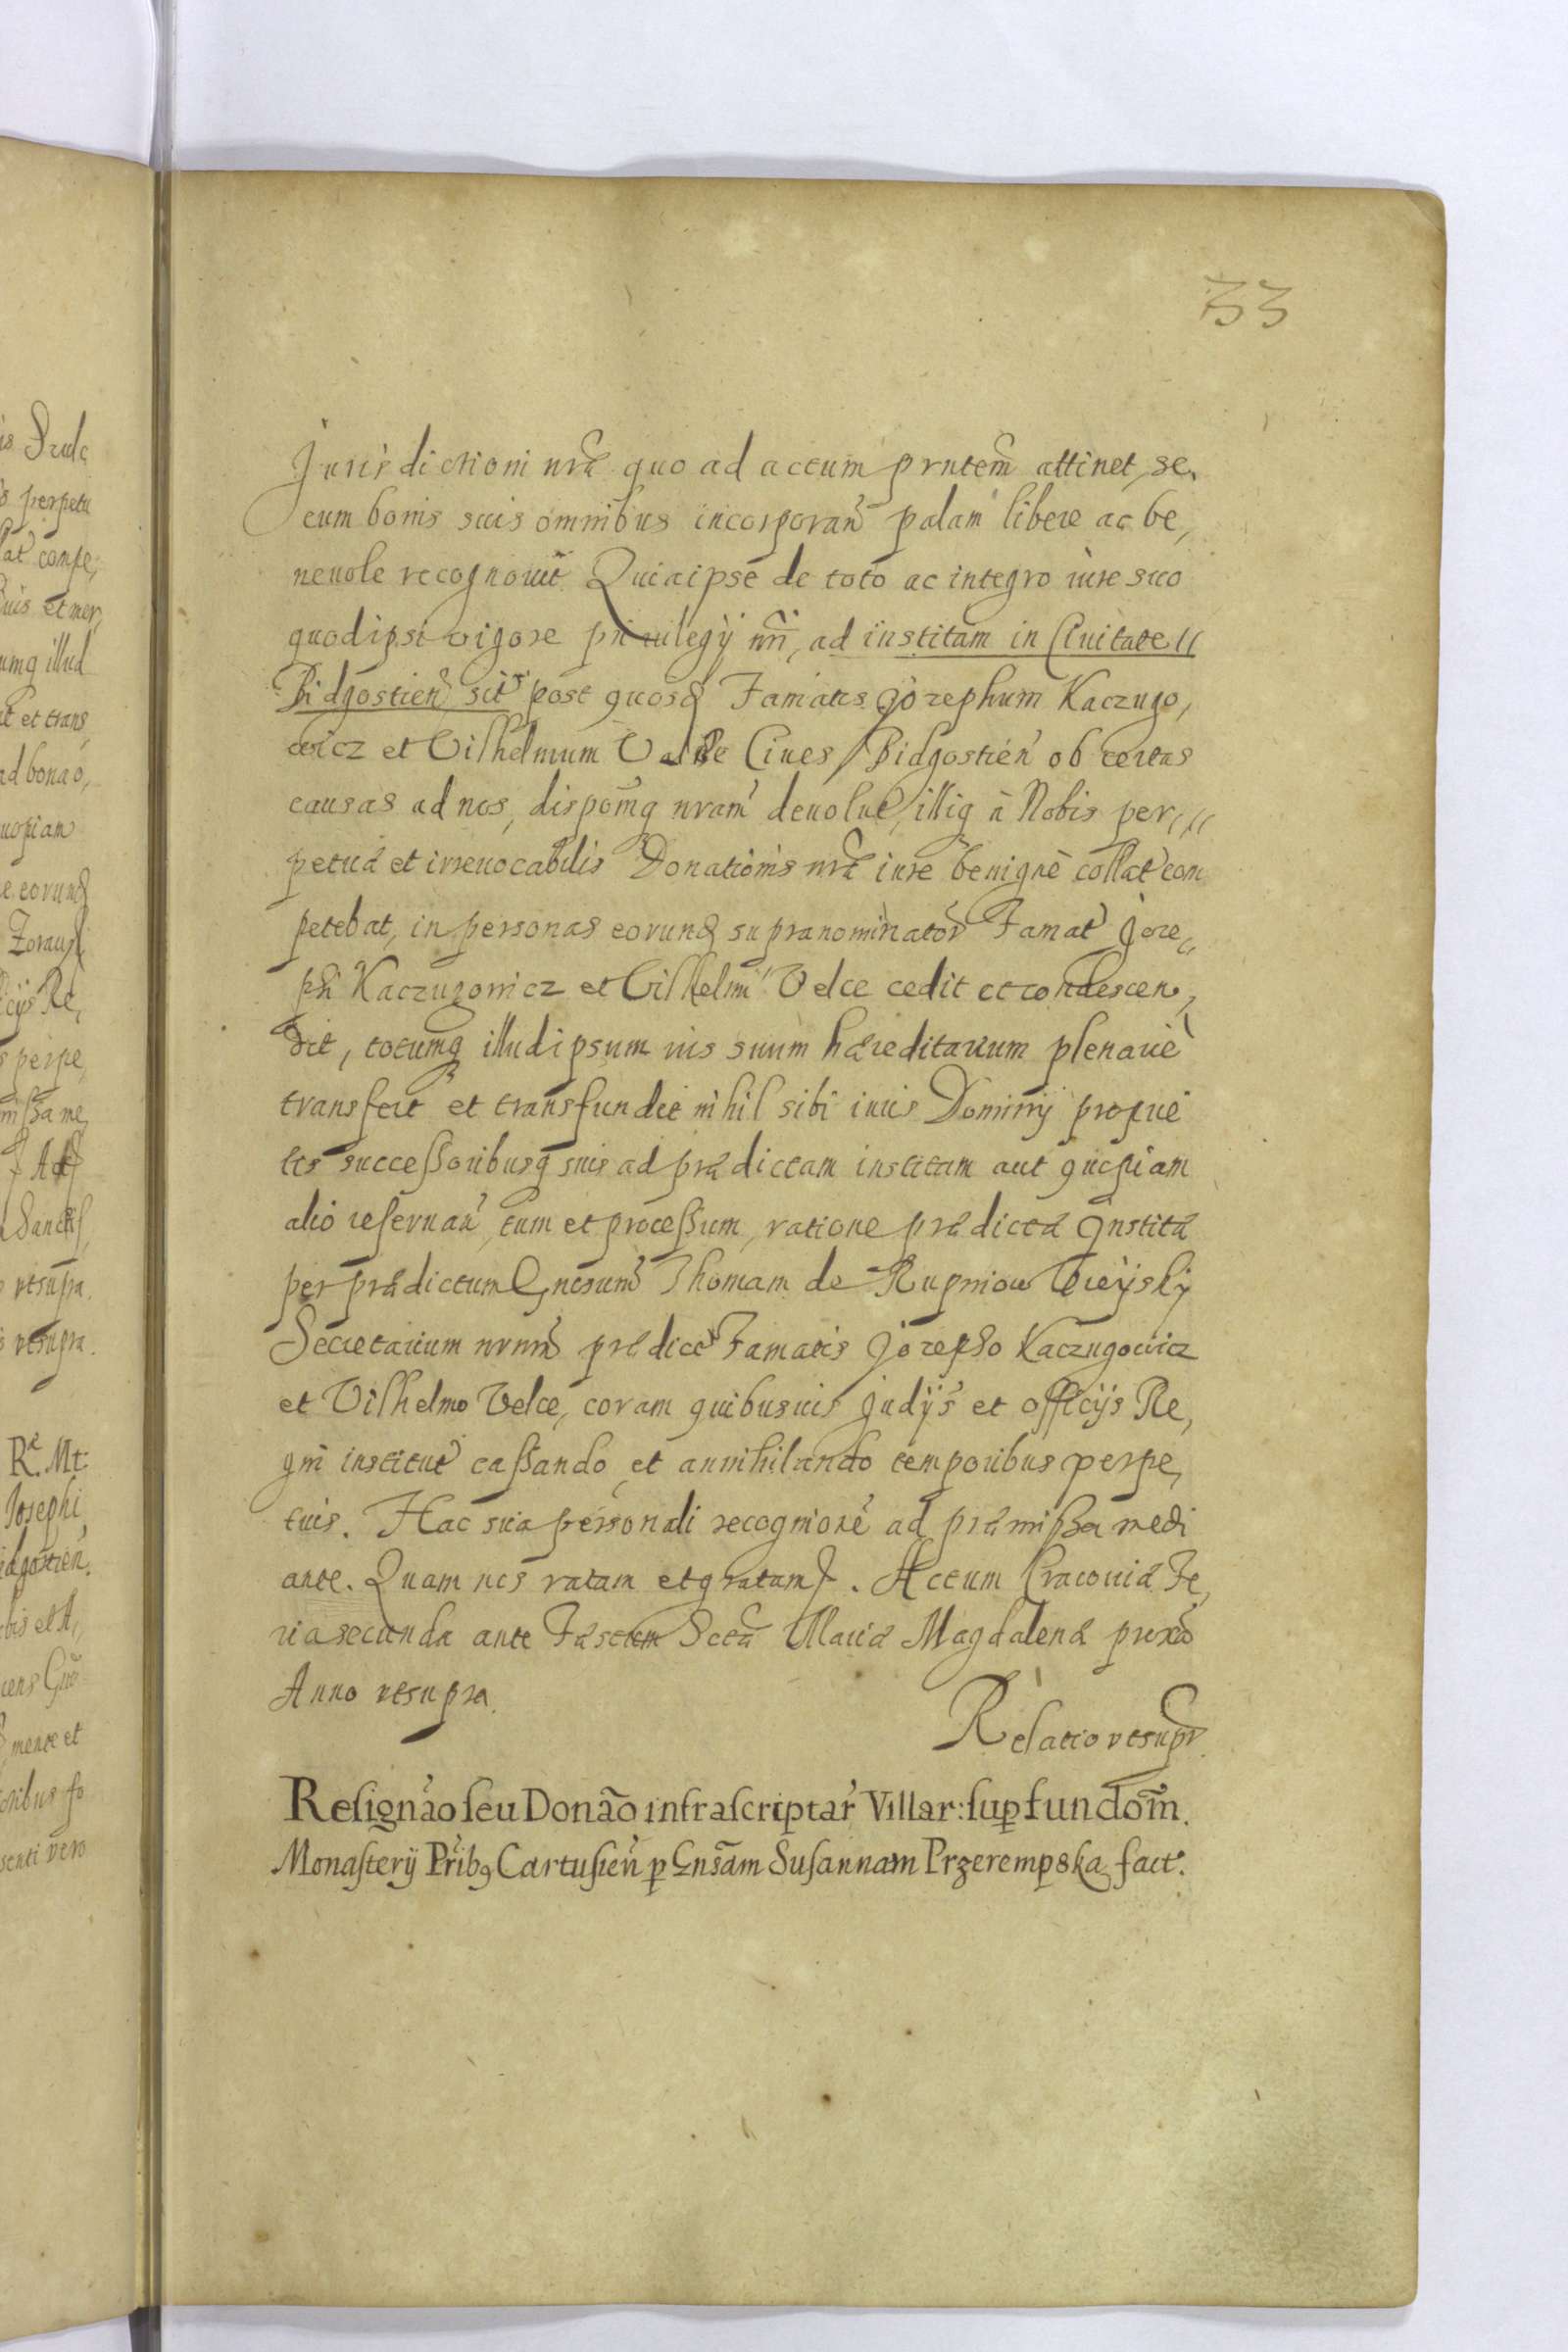 33
Jurisdictioni nrã quo ad actum prntem attinet, se,
cum bonis suis omnibus incorporan̄ palam libere ac be,
neuole recognouit Quia ipse de toto ac integro iure suo
quod ipsi vigore priuilegÿ nr̄i, ad institam in Ciuitate //
Bidgostien̄ sit̄ post quosd Famatis Jozephum Kaczugo,
wicz et Vilhelmum Velce Ciues Bidgostien̄ ob certas
causas ad nos, dispōmq nram̄ deuolut, illiq à Nobis per,//
petuæ et irreuocabilis Donationis nræ iure benignè collat̄ com
petebat, in personas eorund supranominator̄ Famat̄ Joze,,
phi Kaczugowicz et Vilhelmi Velce cedit et condescen,
dit, totumq illud ipsum ius suum hæreditarium plenariè
transfert et transfundit nihil sibi iuris Dominij proprie
tis successoribusq suis ad prædictam institam aut quopiam
alio reseruan̄, tum et processum, ratione prædictæ Institæ
per prædictum Gnosum Thomam de Rupniow Ucieysky
Secretarium nrum prædict̄ Famatis Jozepho Kaczugowicz
et Vilhelmo Velce, coram quibusuis Judijs et officijs Re,
gni institut̄ cassando et annihilando temporibus perpe,
tuis. Hac sua personali recognione ad præmissa medi
ante. Quam nos ratam et gratam &. Actum Cracouiæ Fe,
ria secunda ante Festum Sctæ Mariæ Magdalenæ proxã
Anno utsupra.
Relatio utsupr
Resignão seu Donão infrascriptar̄ Villar: sup fundom̄.
Monasterij Prib9 Cartusien̄ p Gnsãm Susannam Przerempska fact.
is
perpetu
lat̄ compe,
illud
et trans
ad bona o,
eorund
perpe,
utsupra.
utsupra.
R. Mt:
Josephi
mente et
senti vero